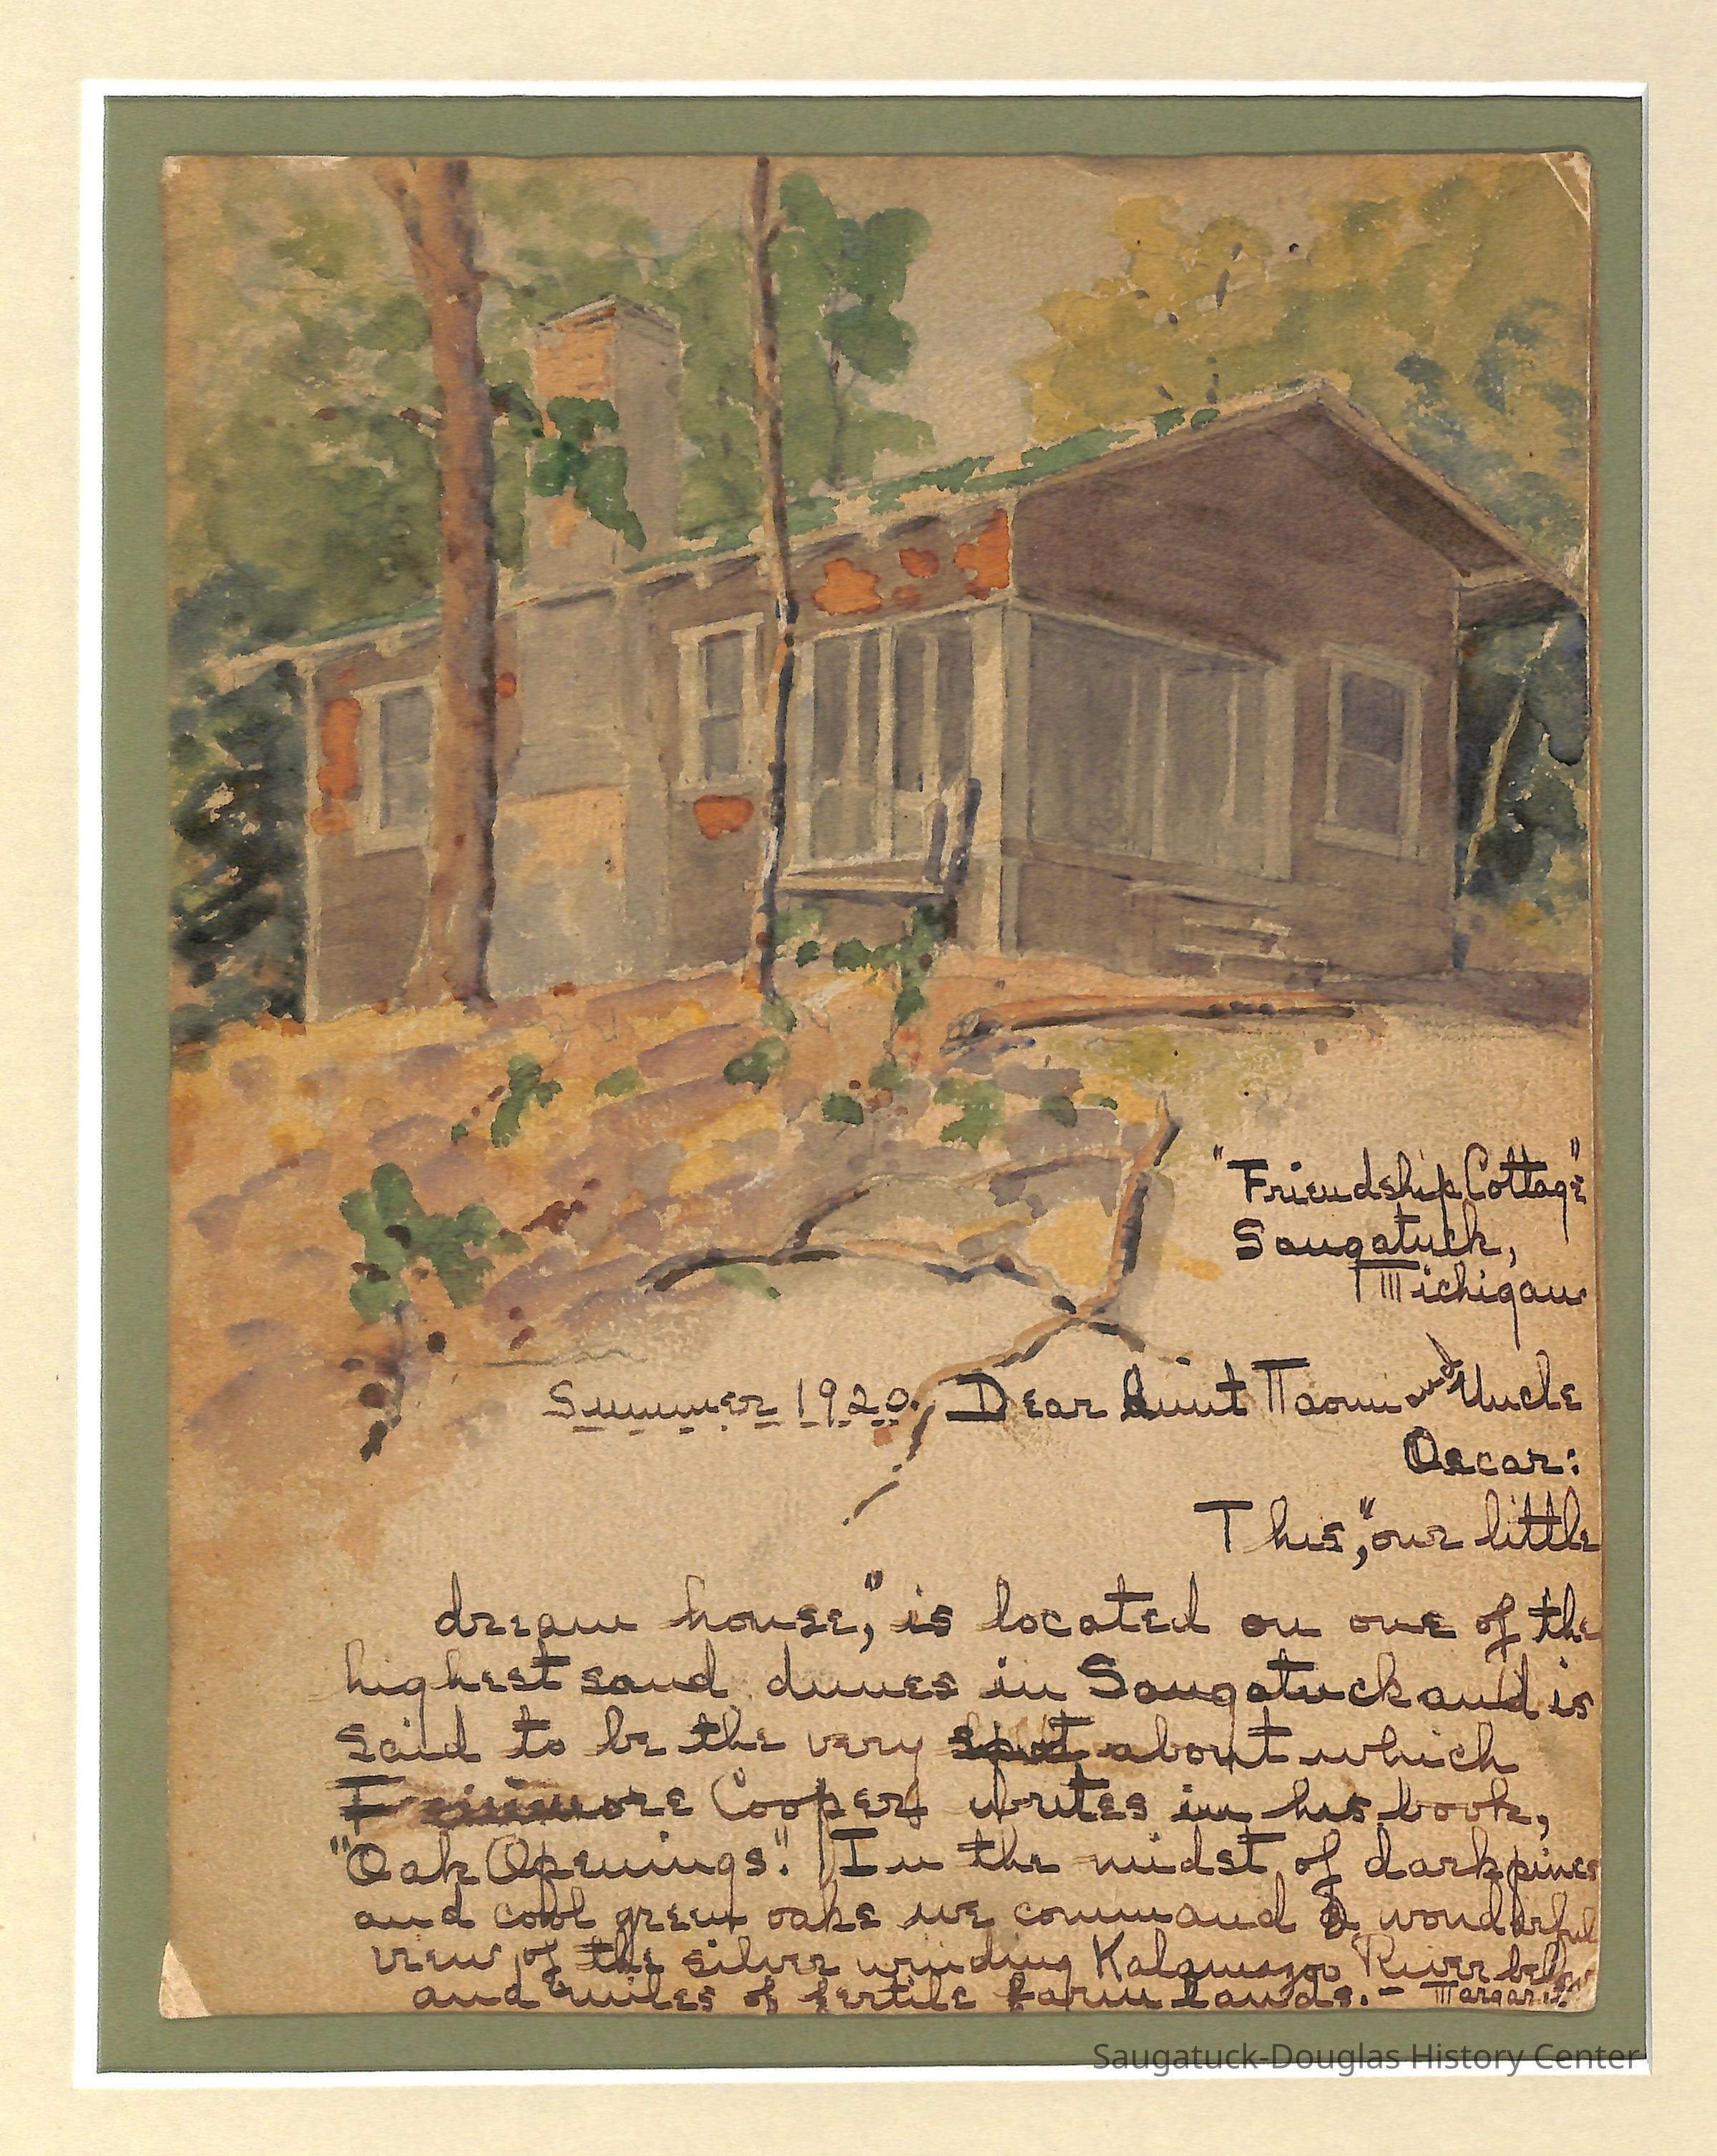 "Friendship Cottage"
Saugatuck,
Michigan
Summer 1920. Dear Aunt Naomi and Uncle
Oscar:
This, "our little
dream house," is located on one of the
highest sand dunes in Saugatuck and is
said to be the very spot about which
Fenimore Cooper writes in his book,
"Oak Openings". In the midst of dark pines
and cool green oaks we command a wonderful
view of the silver winding Kalamazoo River below
and miles of fertile farm lands. -
Saugatuck-Douglas History Center